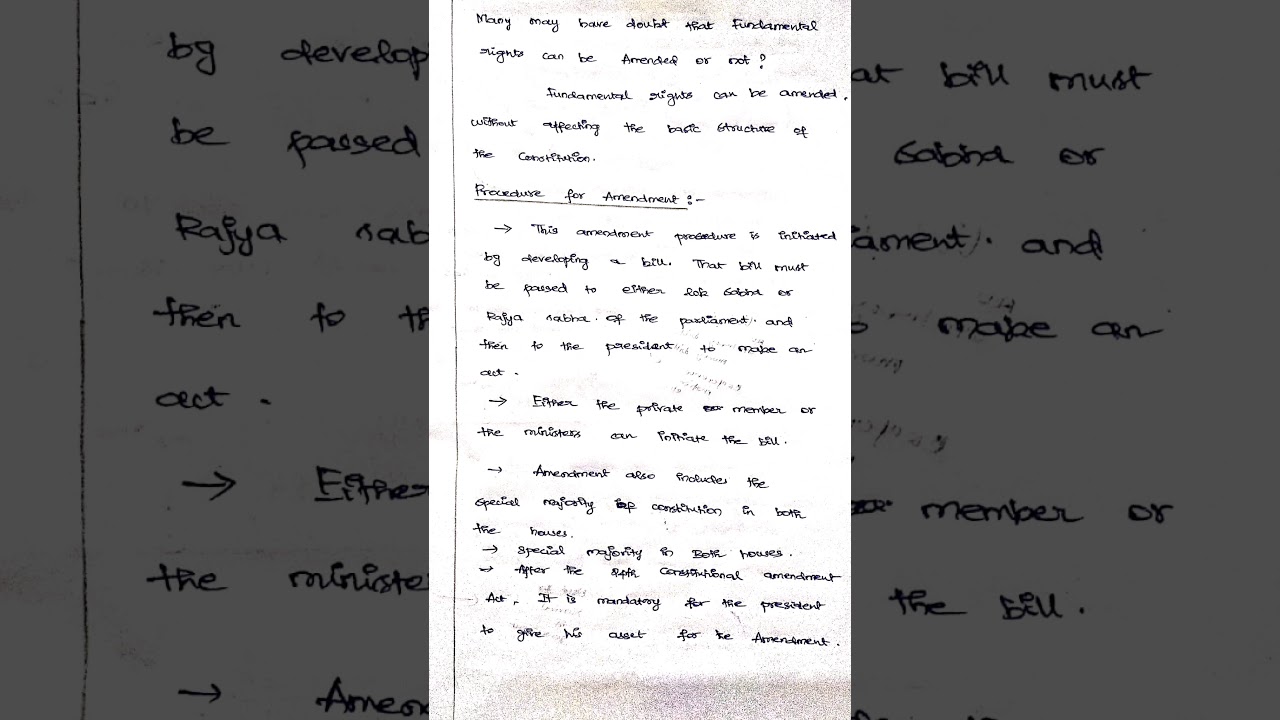 Many may have doubt that Fundamental
rights can be Amended or not?
Fundamental rights can be amended.
without affecting the basic structure of
the Constitution.
Procedure for Amendment :-
→ This amendment procedure is initiated
by developing a bill. That bill must
be passed to either lok sabha or
Rajya sabha. of the parliament. and
then to the president to make an
act.
→ Either the private member or
the ministers can initiate the bill.
→ Amendment also includes the
special majority of constitution in both
the houses.
→ special majority in Both houses.
→ After the 24th Constitutional amendment
Act, It is mandatory for the president
to give his asset for the Amendment.